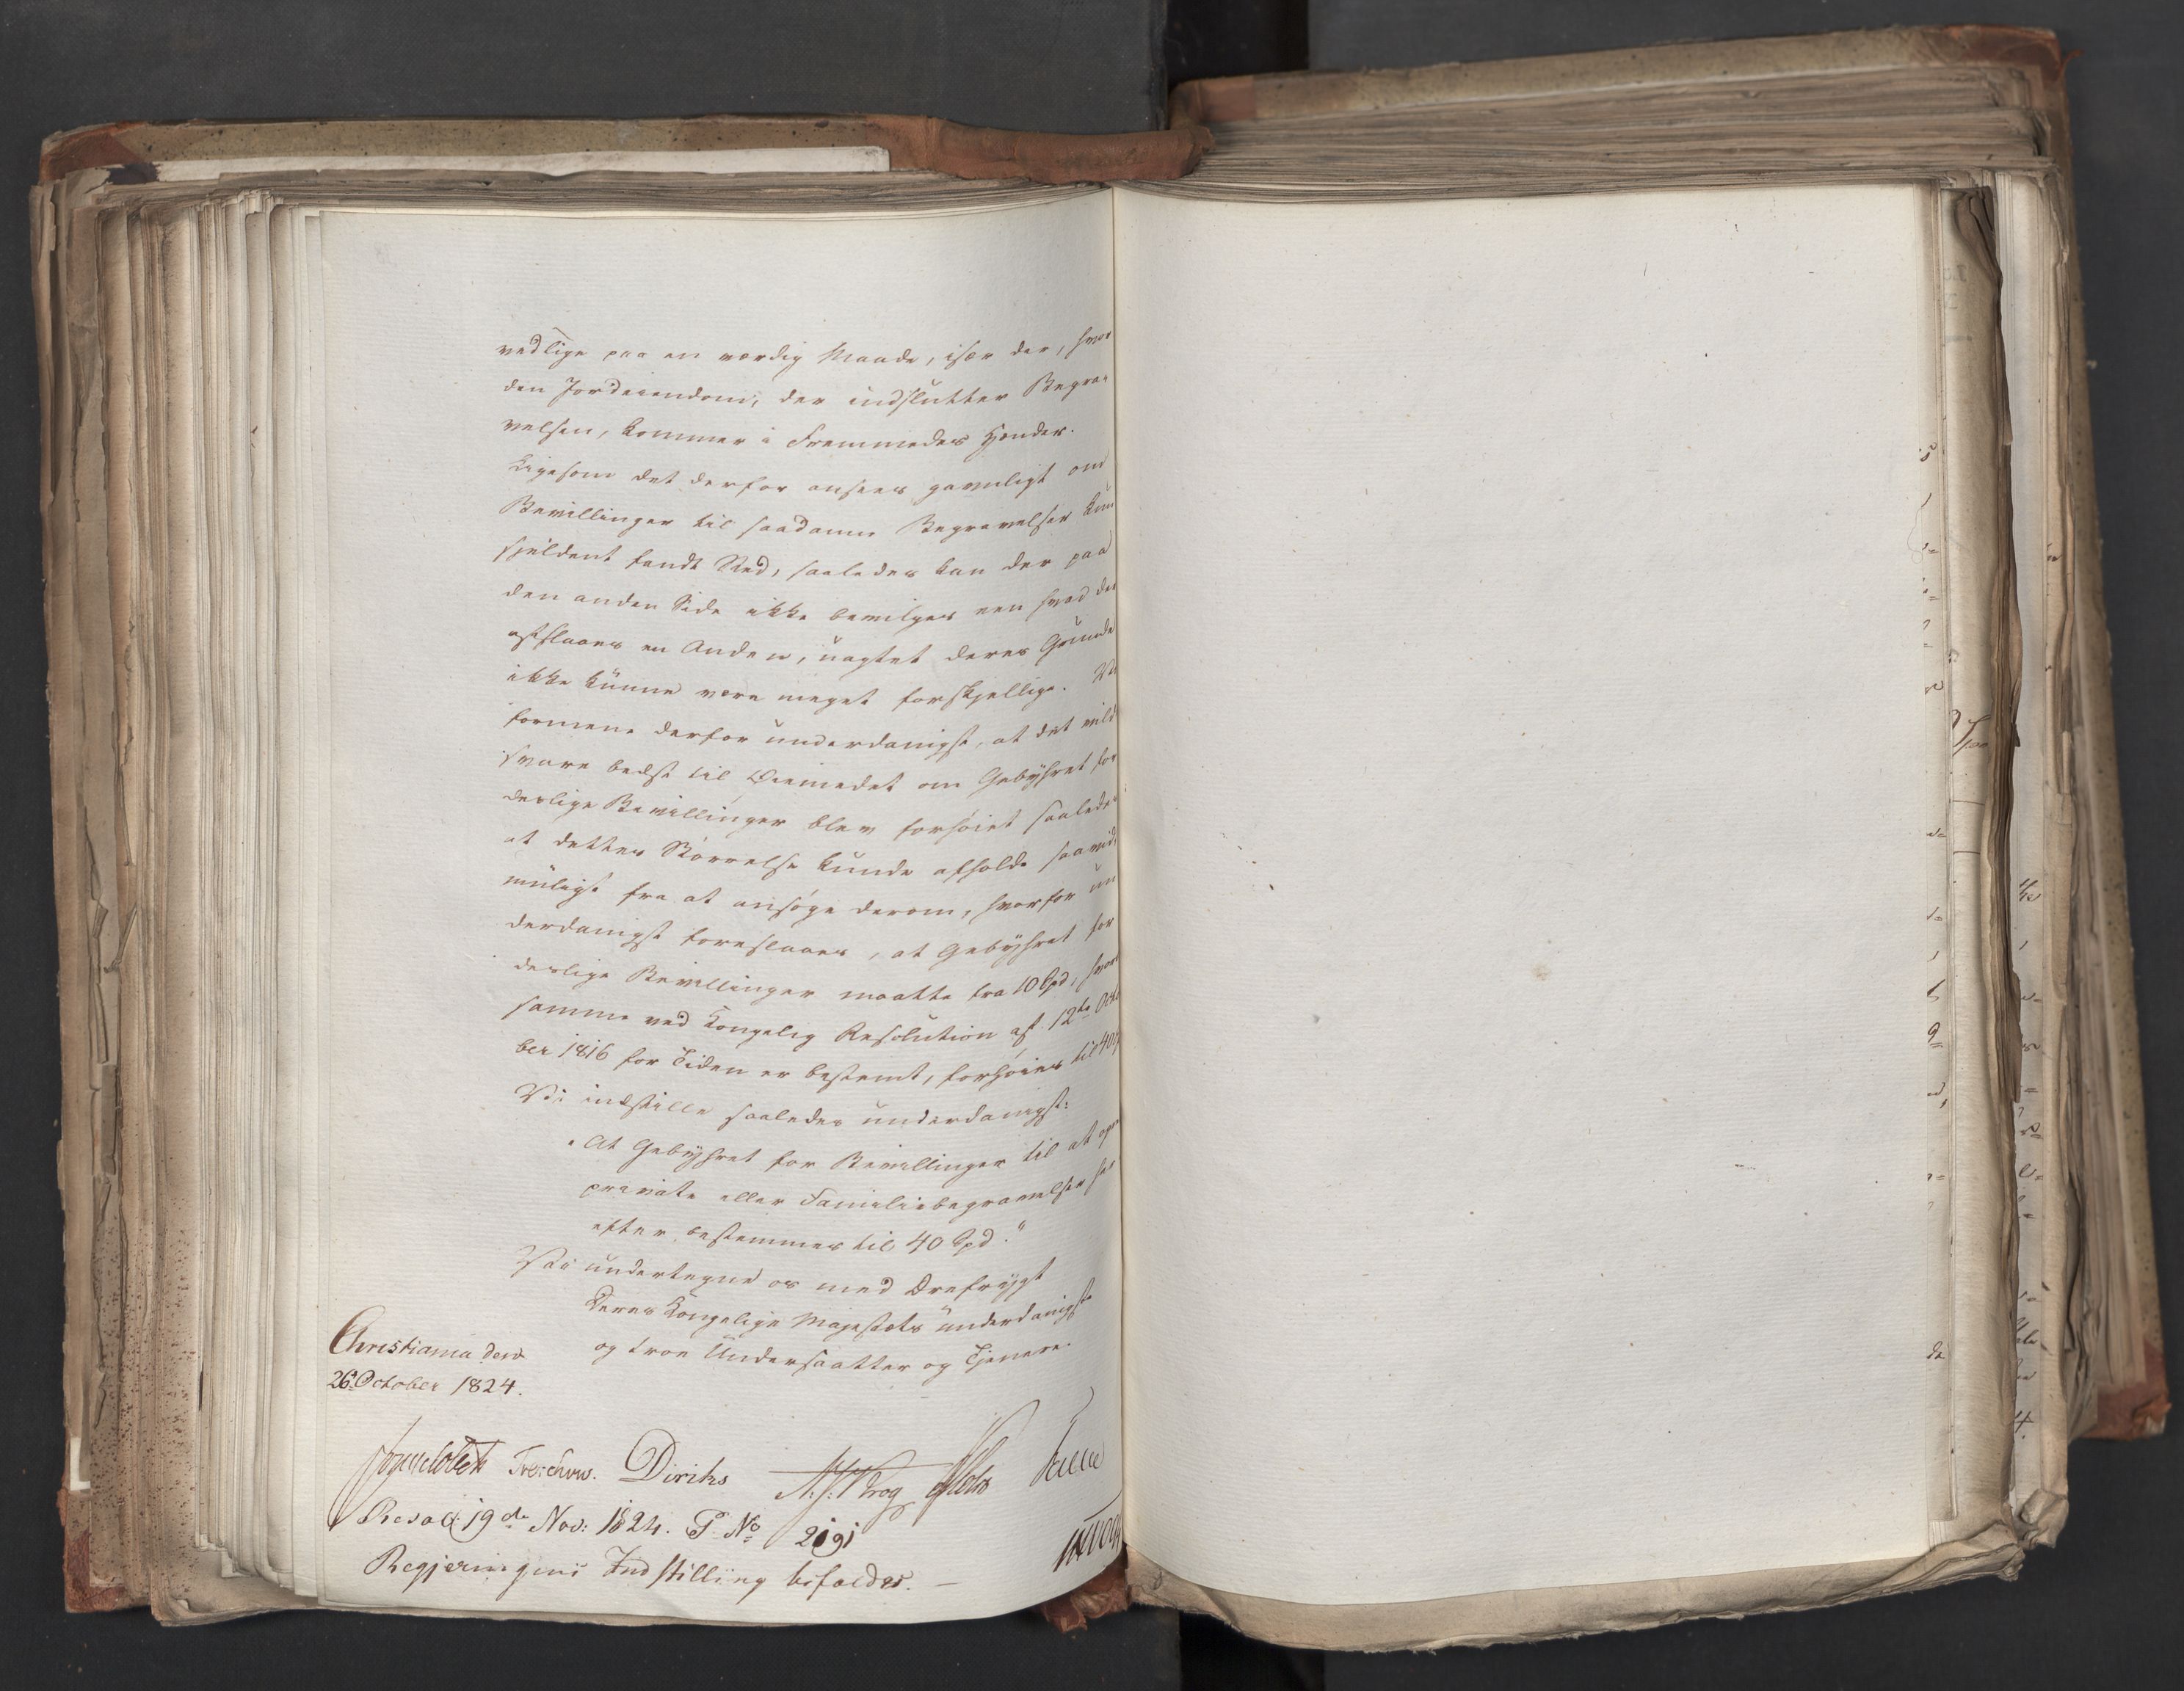 vedlige paa en værdig Maade, især der, hvor
den Jordeiendom, der indslutter Begra-
velsen, kommer i Fremmedes Hænder.
Ligesom det derfor ansees gavnligt om
Bevillinger til saadanne Begravelser kun
sjeldent fandt Sted, saaledes kan der paa
den anden Side ikke bevilges een hvad der
afslaaes en Anden, uagtet deres Grunde
ikke kunne være meget forskjellige. Vi
formene derfor underdanigst, at det vilde
svare bedst til Øiemedet om Gebyhret for
deslige Bevillinger blev forhøiet saaledes
at dettes Størrelse kunde afholde saavidt
muligt fra at ansøge derom, hvorfor un
derdanigst foreslaaes, at Gebyhret for
deslige Bevillinger maatte fra 10 Spd, hvor
samme ved Kongelig Resolution af 12te Octo
ber 1816 for Tiden er bestemt, forhøies til 40
Vi indstille saaledes underdanigst:
"At Gebyhret for Bevillinger til at
private eller Familiebegravelser her
efter bestemmes til 40 Spd."
Vi undertegne os med Ærefrygt
Deres Kongelige Majestæts underdanigste
og troe Undersaatter og Tjenere.
Christiania den
26 October 1824.
Treschow. Diriks
Resol: 19de Nov: 1824. P. No 2191
Regjeringens Indstilling bifaldes. —